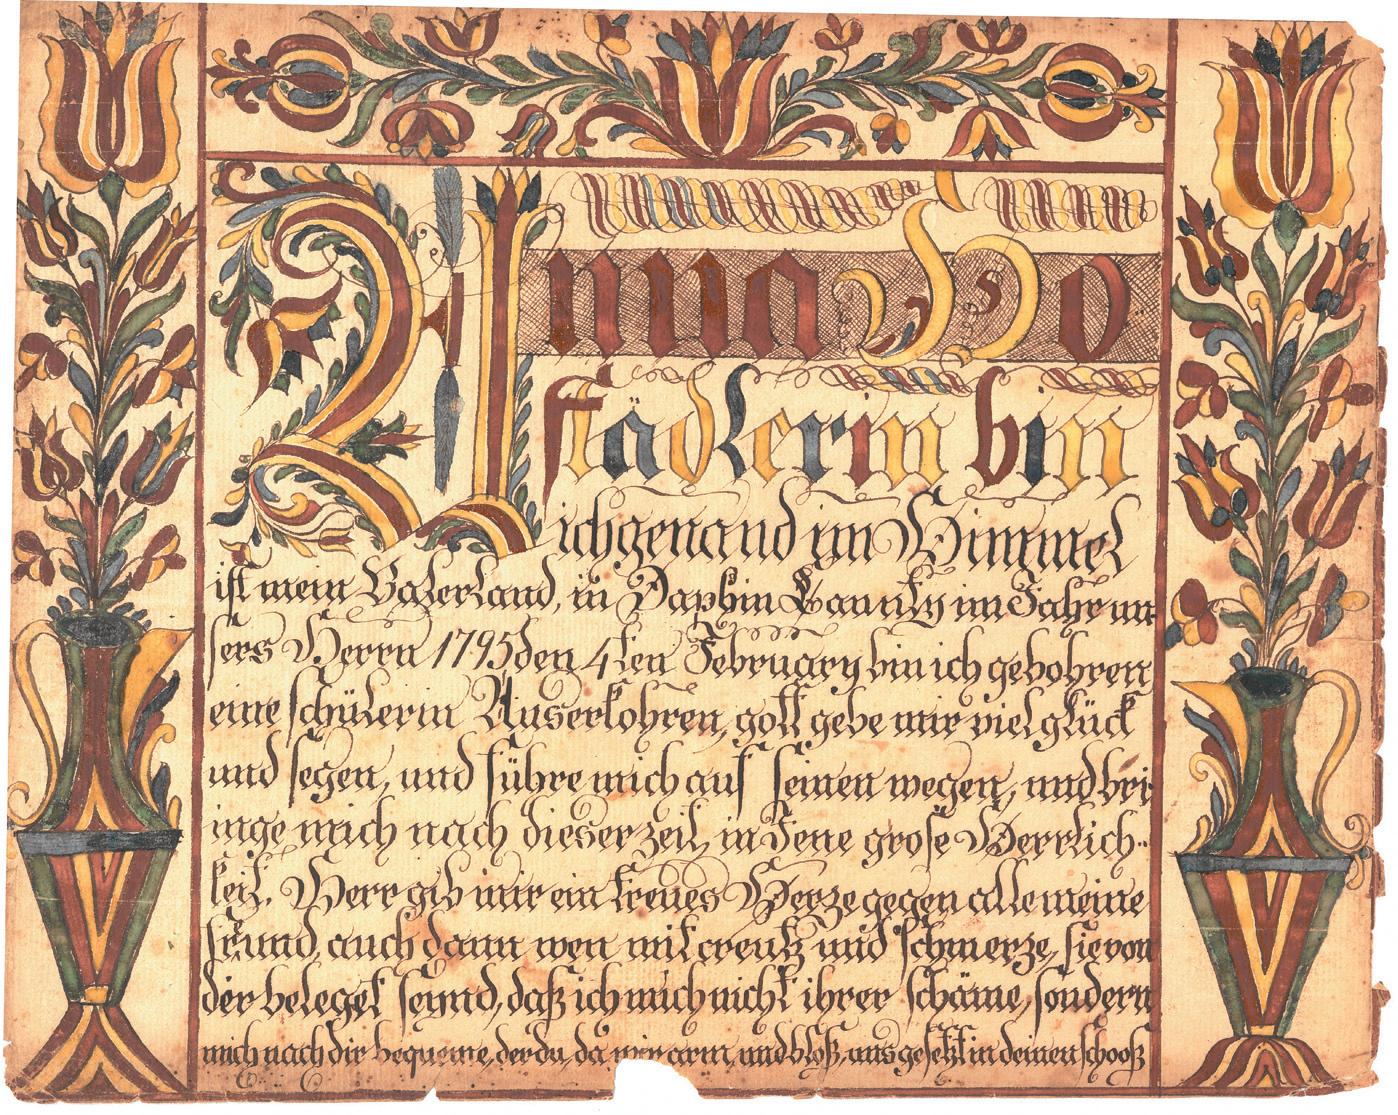 Anna Ho
städlerin bin
ich genand im Himmel
ist mein Vaterland, in Daphin Caunty im Jahr un
sers Herrn 1795 den 4ten February bin ich gebohren
eine schülerin Auserkohren, gott gebe mir viel glück
und segen, und führe mich auf seinen wegen, und bri
inge mich nach dieser zeit, in Jene grose Herrlich-
keit. Herr gib mir ein treues Herze gegen alle meine
freund, auch dann wen mit creutz und schmerze, sie von
dir beleget seynd, daß ich mich nicht ihrer schäme, sondern
mich nach dir bequeme, der du, da wir arm, und bloß, uns gesetzt in deinen schooß